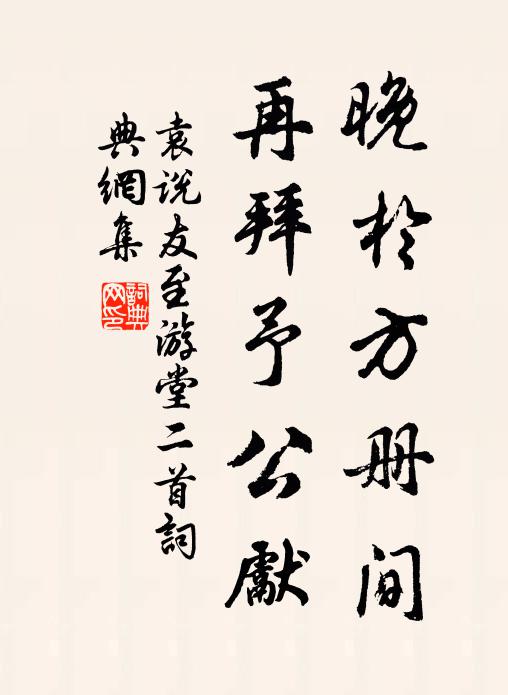 晚於方册间
再拜予公獻
袁说友至游堂二首詞
典網集
詞典网印